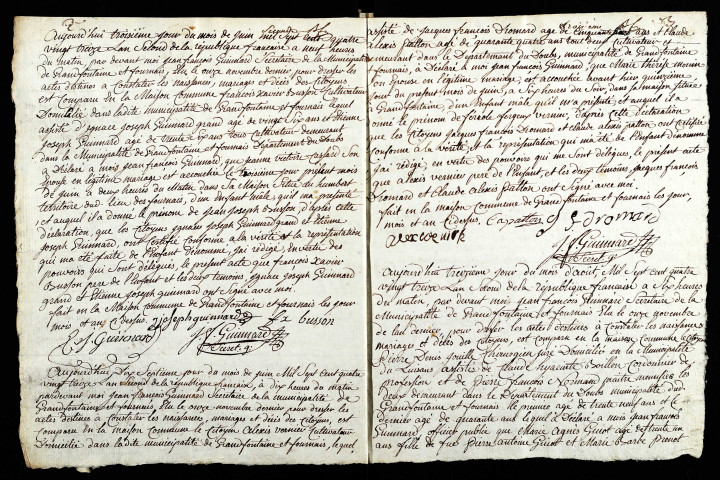 Aujourd'huy troisième jour du mois de juin mil sept cents quatre
vingt treize L'an second de la république française a neuf heures
du matin, par devant moi jean françois Guinnard Secretaire de la Municipalité
de Grandfontaine et fournais, élu le onze novembre dernier pour dresser les
actes destinés a Constater les naissances, mariages et décès des Citoyens,
est comparu en la Maison Commune françois xavier Busson Cultivateur
Domicilié dans ladite municipalité de Grandfontaine et fournais lequel
assisté d'ignace Joseph Guinnard grand agé de vingt six ans et Etienne
Joseph Guinnard agé de trente ans tous Cultivateur demeurant
dans la Municipalité de Grandfontaine et fournais Département du Doubs
a Déclaré a moi jean françois Guinnard, que jeanne victoire Son
épouse en légitime mariage est accouchée le troisième jour présent mois
de juin a deux heures du Matin dans Sa Maison
territoire dud. lieu des fournais, d'un Enfant mâle qu'il ma présenté
et auquel il a donné le prénom de jean joseph Busson, d'après Cette
déclaration, que les Citoyens ignace joseph Guinnard grand et Etienne
joseph Guinnard, ont Certifié Conforme a la vérité et la représentation
qui ma été faite de l'Enfant dénommé, jai rédigé, en vertu des
pouvoirs qui me Sont délégués, le présent acte que françois xavier
Busson pere de l'Enfant et les deux temoins ignace joseph Guinnard
grand et Etienne joseph guinnard ont Signé avec moi.
fait en la Maison commune de Grandfontaine et fournais les jour
mois et an Ci dessus. J joseph guinnard fx busson
E J Guinnard J f Guinnard
Secret. g.
Aujourd'huy Dix Septième jour du mois de juin Mil Sept cent quatre
vingt treize L'an Second de la république française, à dix heures du matin
par devant moi jean françois Guinnard Secretaire de la municipalité de
Grandfontaine et fournais élu le onze novembre dernier pour dresser les
actes destinés a Constater les naissances, mariages et décès des Citoyens, est
comparu en la maison Commune le Citoyen alexis vernier Cultivateur
Domicilié dans la dite municipalité de Grandfontaine et fournais, lequel
assisté de Jacques françois Dromard agé de ans et Claude
alexis Patton agé de quarante quatre ans tout deux Cultivateur
demeurant dans le Département du Doubs, municipalité de Grandfontaine
et fournais, a Déclaré a moi jean françois Guinnard, que Marie therese
Son Epouse en légitime mariage, est accouchée avant hier quinzieme,
jour du présent mois de juin, a six heures du Soir, dans sa maison située
a Grandfontaine, d'un Enfant mâle qu'il m'a présenté, et auquel il a
donné le prénom de vernier, d'après cette déclaration
que les Citoyens Jacques françois Dromard et claude alexis patton ont certifié
conforme a la vérité et la représentation qui ma été de l'Enfant dénommé
j'ai rédigé, en vertu des pouvoirs qui me sont délégués, le présent acte
que alexis vernier pere de l'Enfant, et les deux temoins, jacques françois
Dromard et Claude Alexis Patton ont Signé avec moi.
fait en la Maison Commune de Grandfontaine et fournais les jour,
mois et an Ci dessus. C a patton J f Dromard
alex vernier
J f Guinnard
Secret. g.
Aujourd'huy treizieme jour du mois d'août, Mil Sept cent quatre
vingt treize L'an Second de la république française a heures
du matin, par devant moi jean françois Guinnard Secretaire de la
Municipalité de Grandfontaine et fournais élu le onze novembre
de l'an dernier, pour dresser les actes destinés a Constater les naissances
mariages et décès des Citoyens, est comparu en la maison Commune le Citoyen
Pierre Denis Domicilié en la Municipalité
du Lusans assisté de Claude hyacinte Cordonnier de
profession et de Pierre François
deux demeurant dans le Département du Doubs municipalité du
Grandfontaine et fournais, le premier agé de trente neuf ans et le
dernier agé de quarante ans lequel a Déclaré a moi jean françois
Guinnard, officier public que Marie Agnès Guiot agé de trente un
ans fille de feu Pierre antoine Guiot et Marie Barbe Prenot